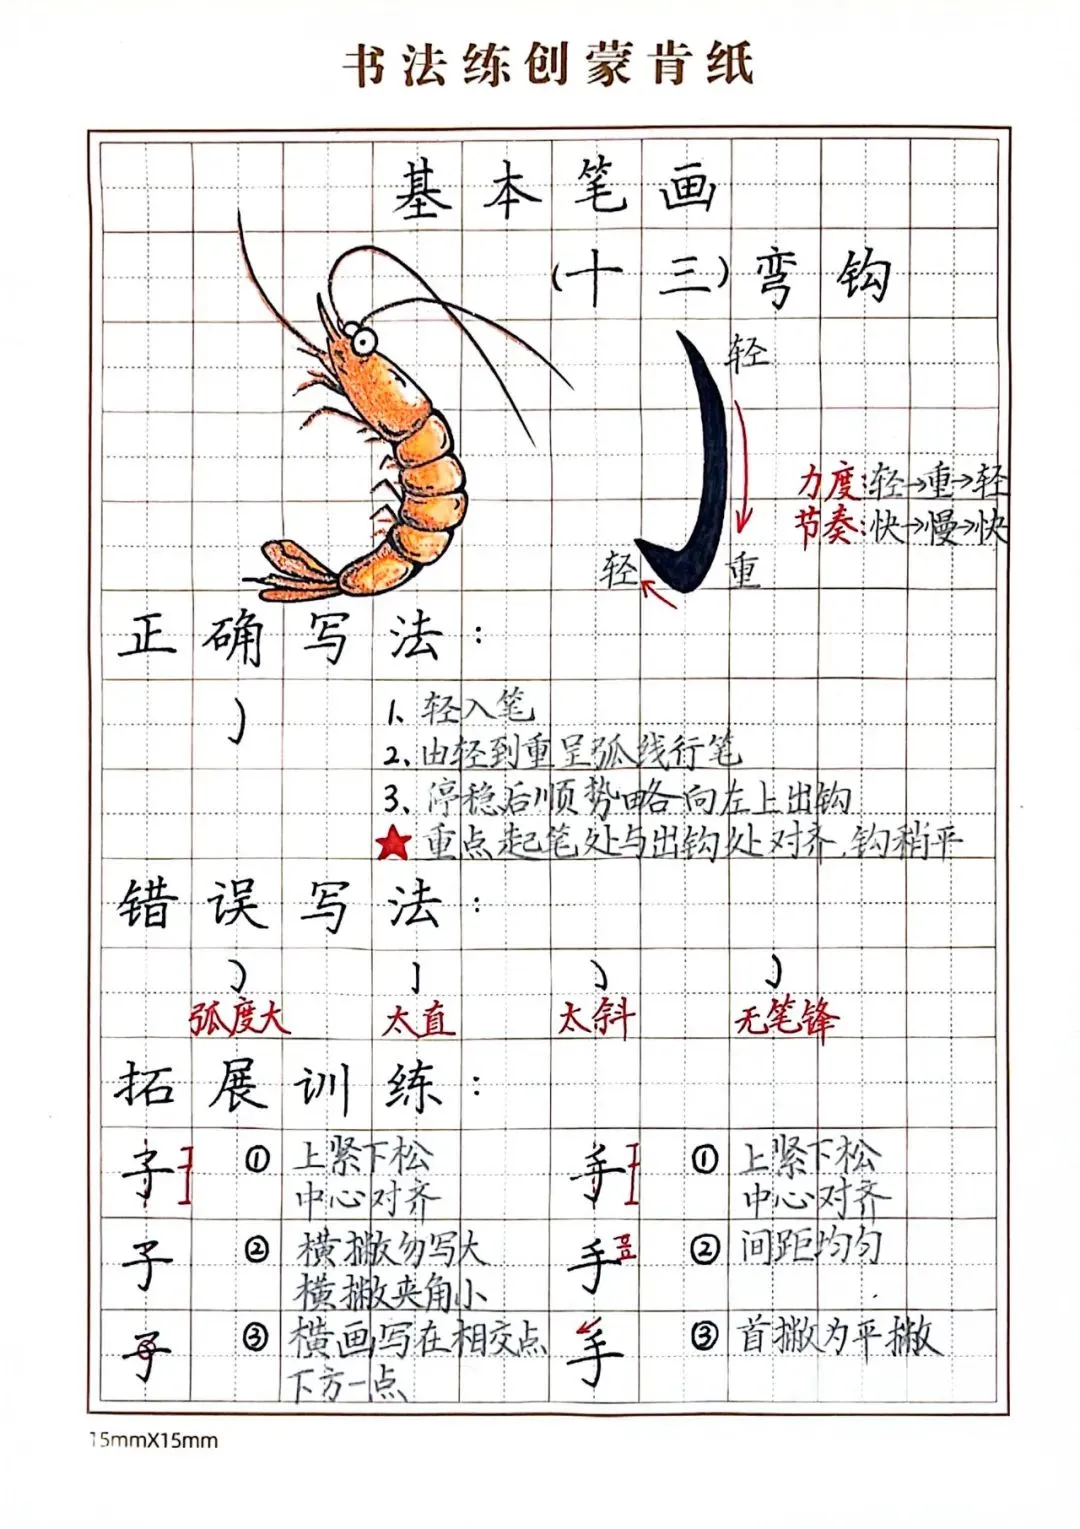 书法练创蒙肯纸
基本笔画
(十三)弯钩
轻
力度:轻→重→轻
节奏:快→慢→快
轻
重
正确写法:
1、轻入笔
2、由轻到重呈弧线行笔
3、停稳后顺势略向左上出钩
★重点起笔处与出钩处对齐,钩稍平
错误写法:
弧度大 太直 太斜 无笔锋
拓展训练:
子 ① 上紧下松
中心对齐
手 ① 上紧下松
中心对齐
子 ② 横撇勿写大
横撇夹角小
手 ② 间距均匀
子 ③ 横画写在相交点
下方一点
手 ③ 首撇为平撇
15mmX15mm